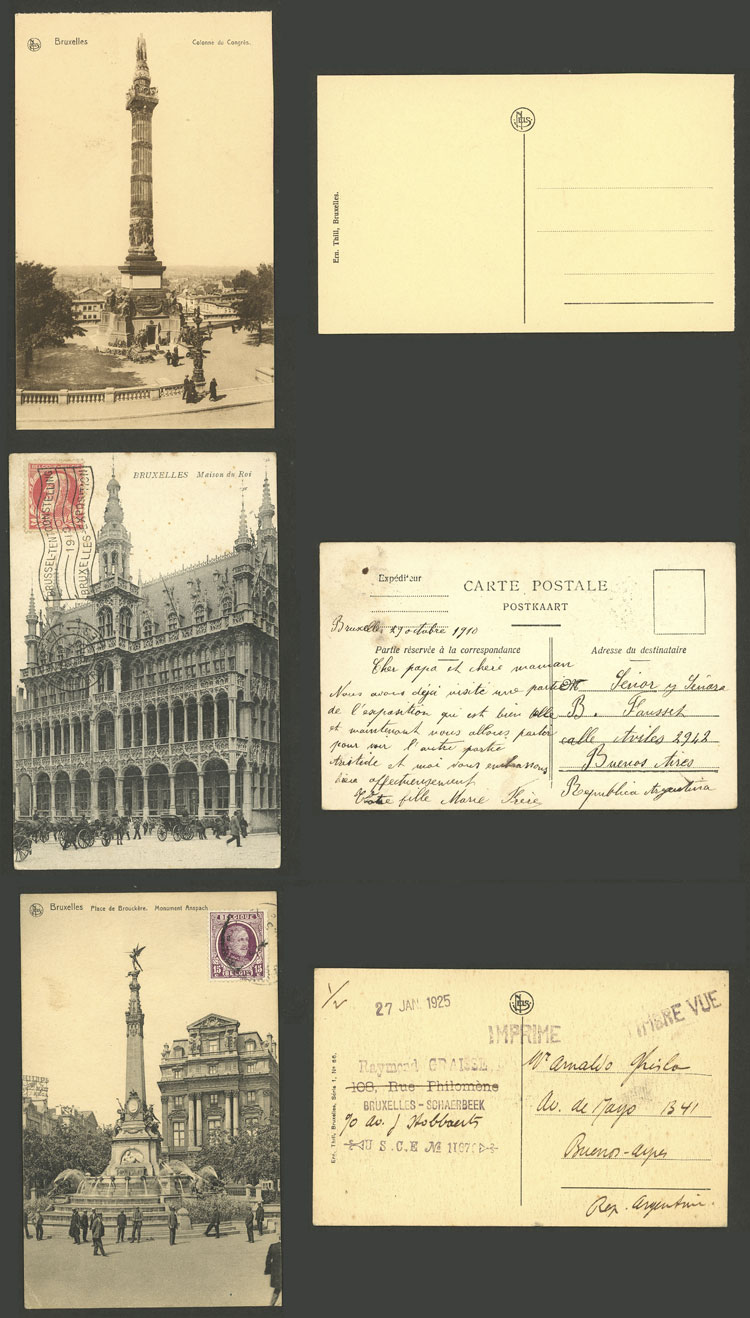 Bruxelles
Colonne du Congrès.
Nels
Ern. Thill, Bruxelles.
BRUXELLES Maison du Roi
BRUSSEL-TENTOONSTELLING
1910
BRUXELLES-EXPOSITION
Expéditeur
CARTE POSTALE
POSTKAART
Bruxelles 29 octobre 1910
Partie réservée à la correspondance
Adresse du destinataire
Cher papa et chère maman
Nous avons déjà visité une partie
de l'exposition qui est bien belle
et maintenant nous allons partir
pour voir l'autre partie
Aristide et moi vous embrassons
bien affectueusement
Votre fille Marie Frère
Señor y Señora
B. Fausset
calle Aviles 2942
Buenos Aires
Republica Argentina
Bruxelles
Place de Brouckère. Monument Anspach
BELGIQUE
15 15
BELGIË
1/2
27 JAN. 1925
Nels
IMPRIME
TIMBRE VUE
Raymond GRAISSE
108, Rue Philomène
BRUXELLES - SCHAERBEEK
Av. J
U S.C.E №
Ern. Thill, Bruxelles, Série 1, No 66.
Mr Arnaldo
Av. de Mayo 1341
Buenos-ayres
Rep. Argentine.